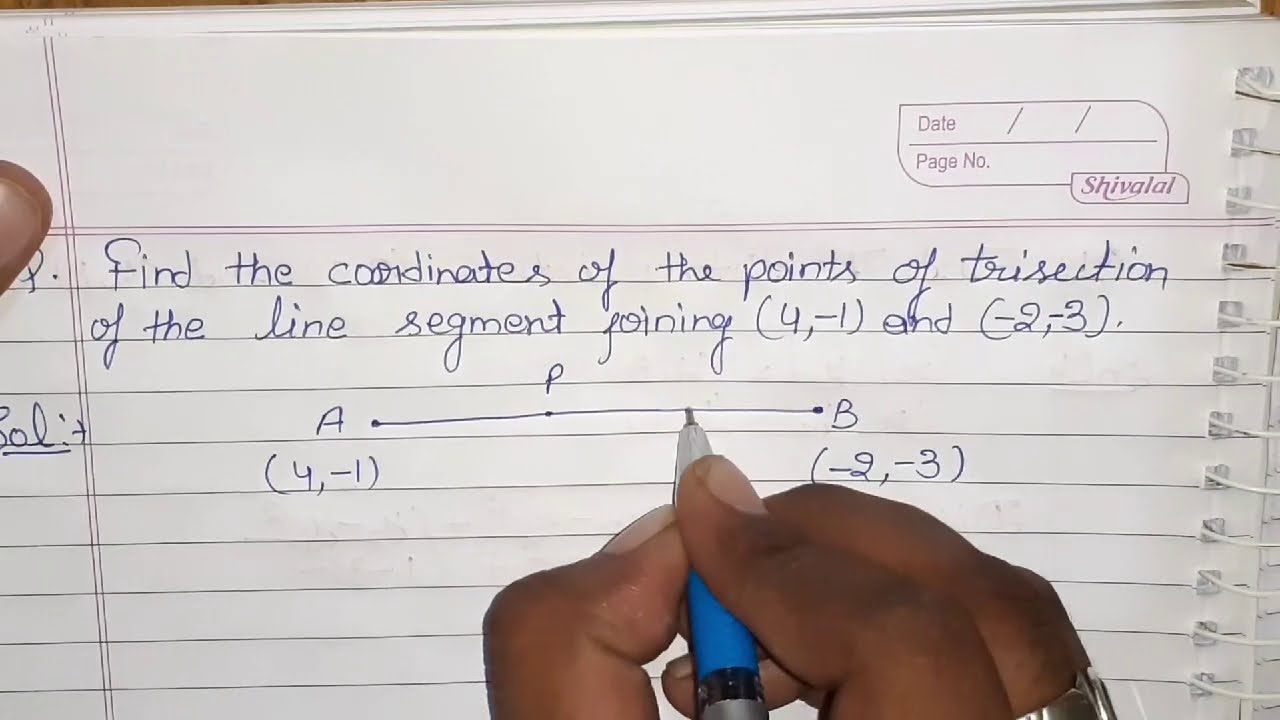 Date / /
Page No.
Shivalal
Q. Find the coordinates of the points of trisection
of the line segment joining (4,-1) and (-2,-3).
Sol:→
P
A B
(4,-1) (-2,-3)